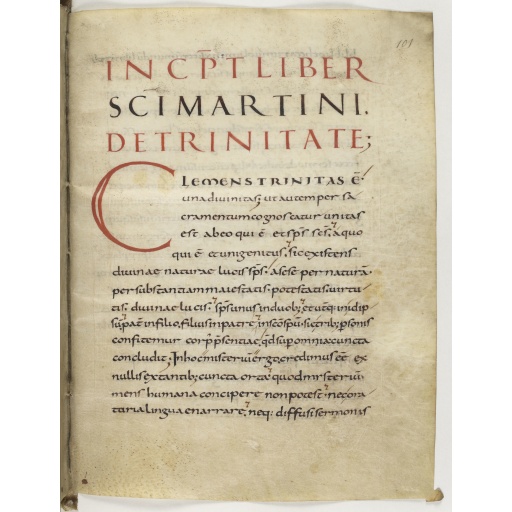 101
INCP̄T LIBER
SC̄I MARTINI.
DE TRINITATE;
CLEMENS TRINITAS Ē·
una divinitas; ut autem per sa
cramentum cognoscatur unitas
est ab eo qui ē et sps̄ sc̄s, a quo
qui ē et unigenitus, sic existens
divinae naturae lucis sps̄· a se se per naturā·
per substantiam maiestatis· potestatis virtu
tis; divinae lucis· sps̄ unus in duob; et utq; in id ip
sū, pat̄ in filio, filius in patre,
confitemur
concludit; In hoc misteriū ergo credimus
nullis extantib; cuncta orta, quod misteriū
mens humana concipere non potest· nec ora
toria lingua enarrare, neq; diffusi sermonis